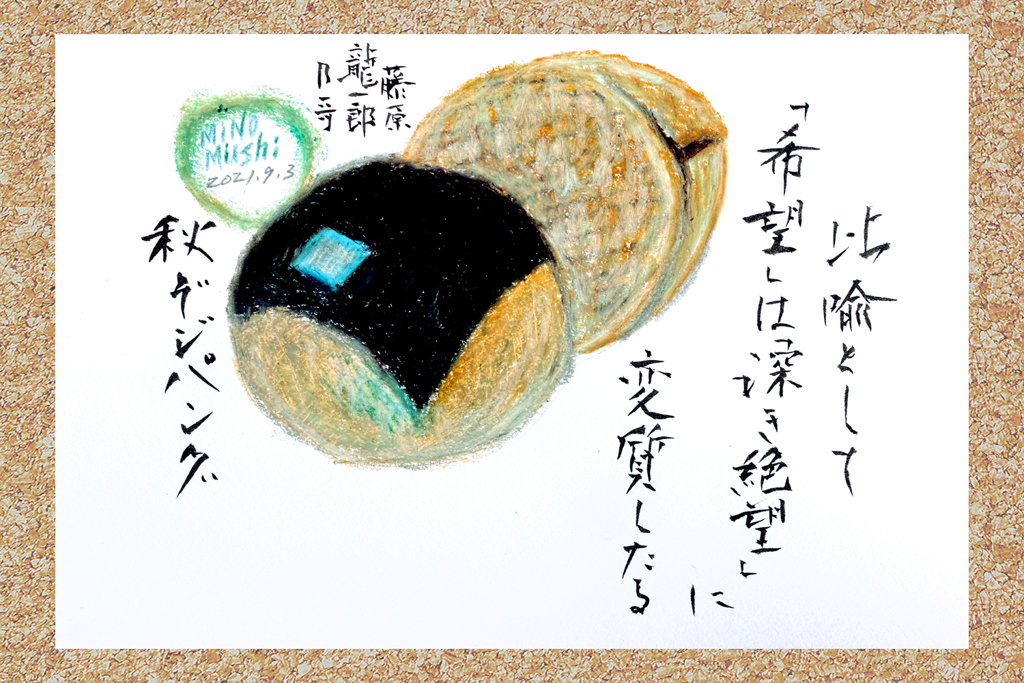 比喩として
「希望」は深き絶望」に
変質したる
秋 ジパング
藤原
龍一郎
乃哥
MiNO
Mushi
2021.9.3